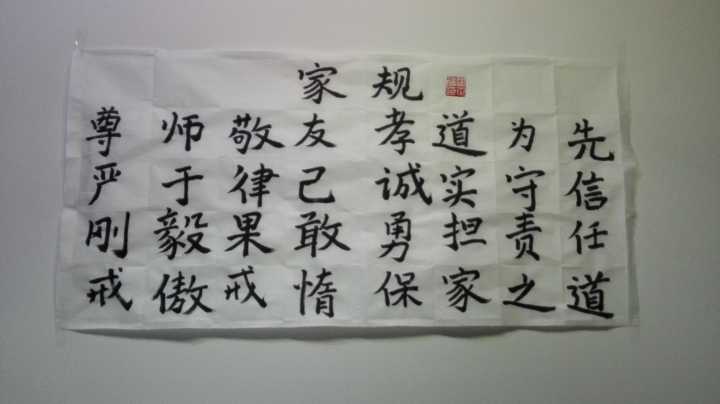 家规
尊师敬友孝道为先
严于律己诚实守信
刚毅果敢勇担责任
戒傲戒惰保家之道